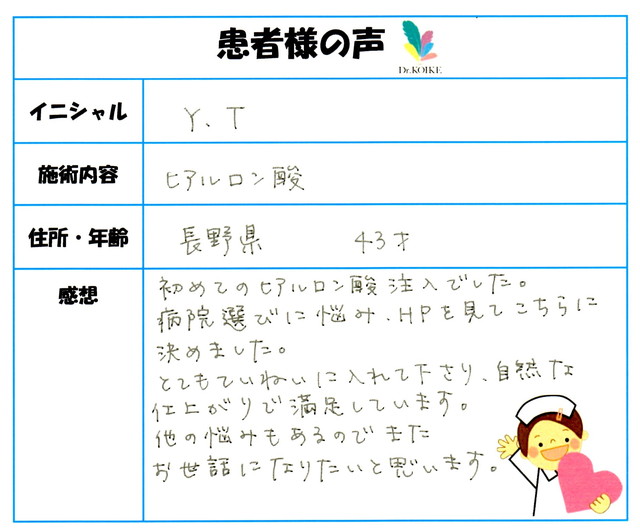 患者様の声
Dr.KOIKE
イニシャル
Y、T
施術内容
ヒアルロン酸
住所・年齢
長野県 43才
感想
初めてのヒアルロン酸注入でした。
病院選びに悩み、HPを見てこちらに
決めました。
とてもていねいに入れて下さり、自然な
仕上がりで満足しています。
他の悩みもあるのでまた
お世話になりたいと思います。